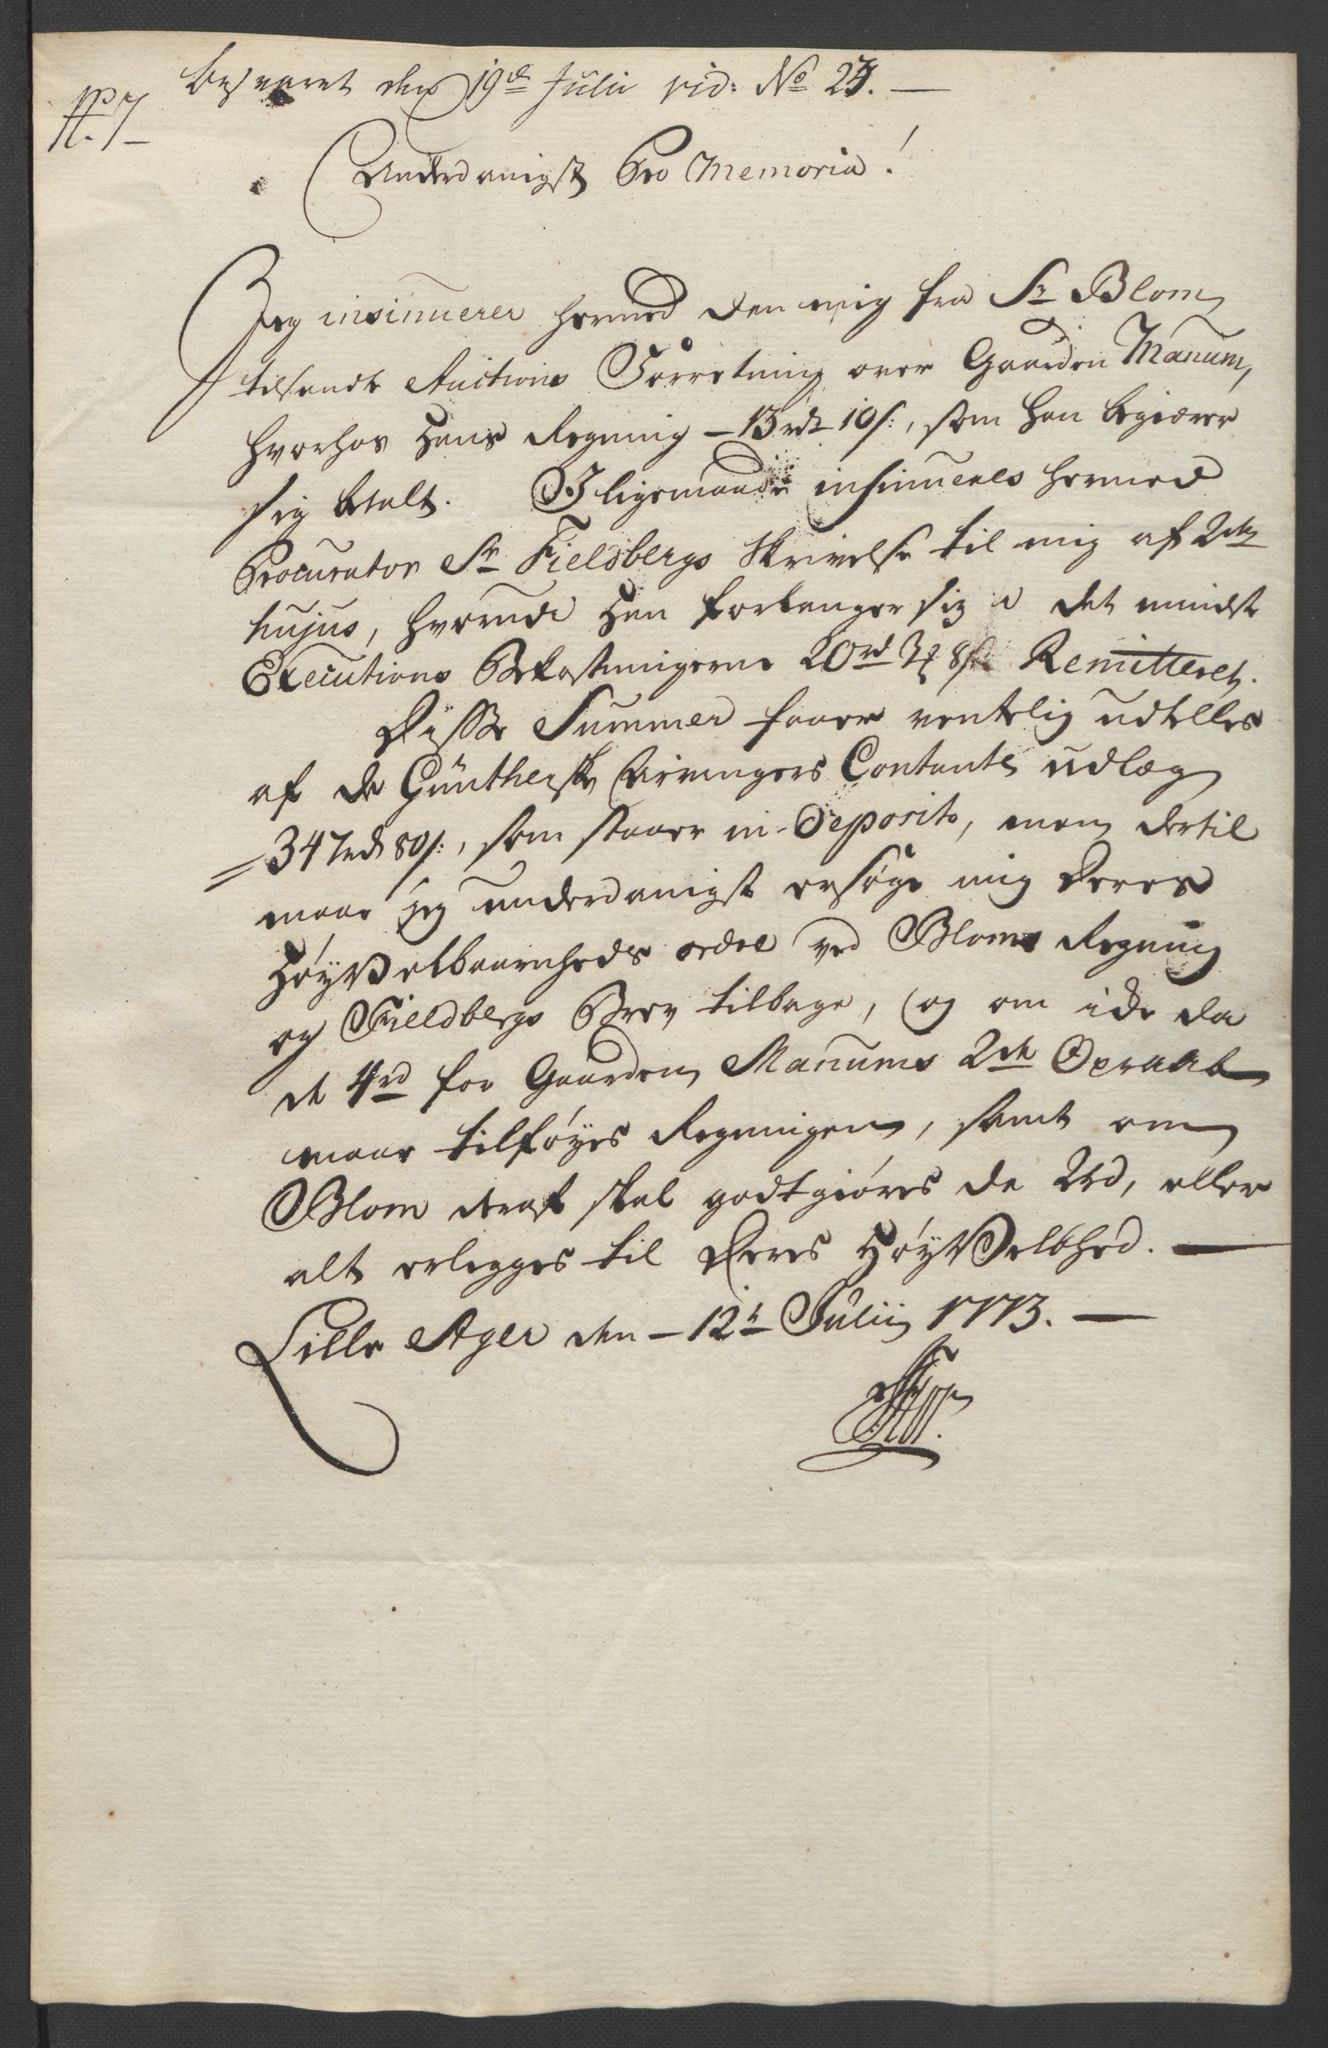 besvaret den 19de Julii vid: No 23.
No 7
Underdanigst Pro Memoria!
Jeg insinuerer hermed den mig fra Sr Blom
tilsendte Auctions Forretning over Gaarden Manum,
hvorhos Hans Regning - 13 rdr 10 s:, som han begiærer
sig betalt. Iligemaade insinueres hermed
Procurator Sr Fieldbergs Skrivelse til mig af 2den
hujus, hvorudi Han forlanger sig i det mindste
Executions Bekostningerne 20 rd 3 8 s Remitteret.
Disse Summer faaer ventelig udtelles
af de Güntherske Arvingers Contante udlæg
= 347 rd 80 s:, som staaer in Deposito, men dertil
maae jeg underdanigst ersøge mig Deres
HøyVelbaarenheds ordre ved Bloms Regning
og Fieldbergs Brev tilbage, og om icke da
de 4 rd for Gaarden Manums 2de Opraab
maae tilføyes Regningen, samt om
Blom deraf skal godtgiøres de 2 rd, eller
alt erlegges til Deres HøyVelbhed.
Lille Ager den - 12te Julii 1773.